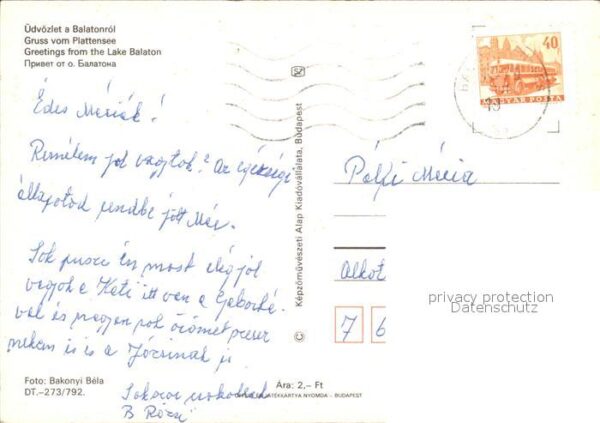 Üdvözlet a Balatonról
Gruss vom Plattensee
Greetings from the Lake Balaton
Привет от о. Балатона
Édes Máriák!
Remélem jól vagytok? Az egészségi
állapotod rendbe jött Már.
Sok puszi Én most elég jól
vagyok a Kati itt van a Gáborká-
val és nagyon sok örömet szerez
nekem is és a Józsinak is
B Rózsi
Foto: Bakonyi Béla
DT.—273/792.
Ára: 2,— Ft
JÁTÉKKÁRTYA NYOMDA - BUDAPEST
© Képzőművészeti Alap Kiadóvállalata, Budapest
40
MAGYAR POSTA
Pálfi Mária
Alkot
7 6
privacy protection
Datenschutz